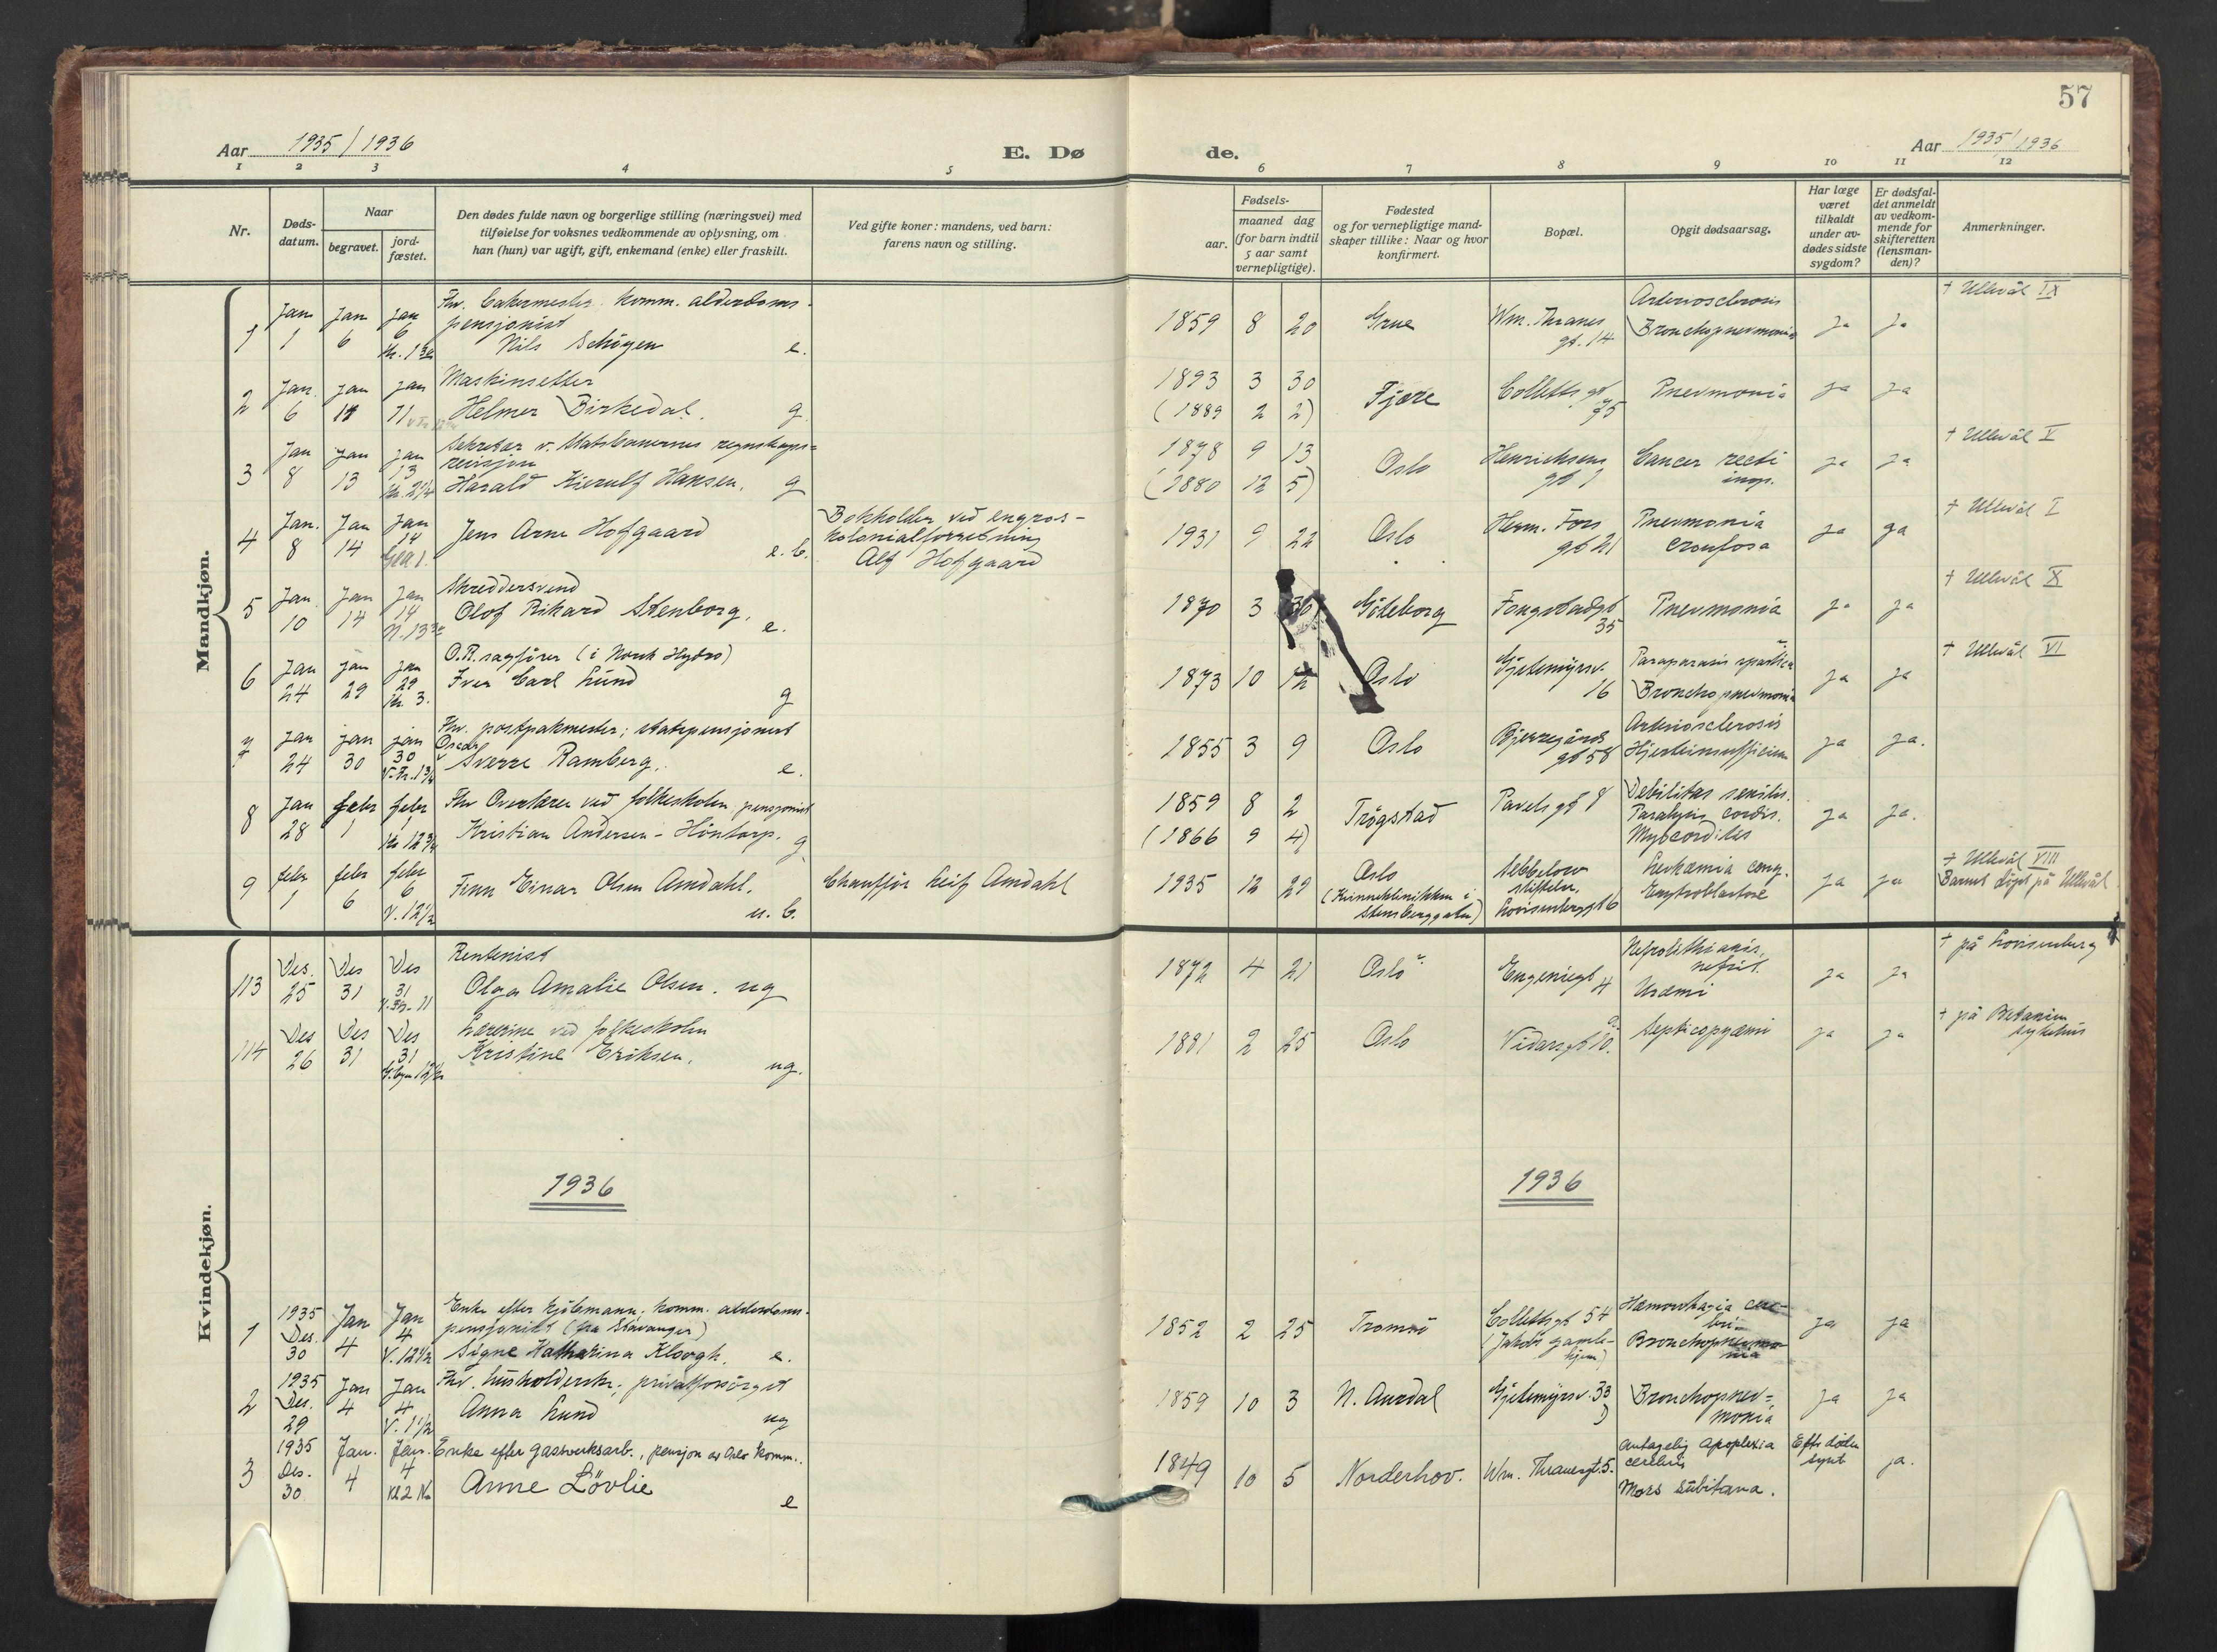 57
Aar 1935/1936
E. Dø
de.
Aar 1935/1936
1 2 3 4 5 6 7 8 9 10 11 12
Nr.
Døds-
datum.
Naar
begravet.
jord-
fæstet.
Den dødes fulde navn og borgerlige stilling (næringsvei) med
tilføielse for voksnes vedkommende av oplysning, om
han (hun) var ugift, gift, enkemand (enke) eller fraskilt.
Ved gifte koner: mandens, ved barn:
farens navn og stilling.
Fødsels-
aar.
maaned dag
(for barn indtil
5 aar samt
vernepligtige).
Fødested
og for vernepligtige mand-
skaper tillike: Naar og hvor
konfirmert.
Bopæl.
Opgit dødsaarsag.
Har læge
været
tilkaldt
under av-
dødes sidste
sygdom?
Er dødsfal-
det anmeldt
av vedkom-
mende for
skifteretten
(lensman-
den)?
Anmerkninger.
Mandkjøn.
1 Jan 1 Jan 6 Jan 6
Fhv. bakermester. komm. alderdoms-
pensjonist
Nils Schøyen e.
1859 8 20 Grue
Wm. Thranes
gt. 14
Arteriosclerosis
Bronchopneumonia
ja ja
† Ullevål IX
2 Jan. 6 Jan 11 Jan 11
Maskinsetter
Helmer Birkedal. g
1893 3 30
(1889 2 2)
Fjære
Colletts gt
75
Pneumonia
ja ja
3 Jan 8 Jan 13 Jan 13
Sekretær v. Statsbanernes regnskaps-
revisjon
Harald Kierulf Hansen. g
1878 9 13
(1880 12 5)
Oslo
Henrichsens
gt 1
Cancer recti
inop.
ja ja
† Ullevål V
4 Jan. 8 Jan 14 Jan 14
Jens Arne Hofgaard e. b.
Bokholder ved engros-
kolonialforretning
Alf Hofgaard
1931 9 22 Oslo
Herm. Foss
gt 21
Pneumonia
crouposa
ja ja
† Ullevål I
5 Jan. 10 Jan 14 Jan 14
Skreddersvend
Olof Rikard Stenborg. e.
1870 3 30 Göteborg
Fougstadgt
35
Pneumonia
ja ja
† Ullevål X
6 Jan 24 Jan 29 Jan 29 Kr. 3.
O.R.sagfører (i Norsk Hydro)
Iver Carl Lund g
1873 10 12 Oslo
Gjetemyrsv.
16
Paraparesis spastica
Bronchopneumonia
ja ja
† Ullevål VI
7 Jan 24 jan 30 jan 30
Fhv. postpakmester; statspensjonist
Oscar
Sverre Ramberg. e.
1855 3 9 Oslo
Bjerregårds
gt 58
Arteriosclerosis
Hjerteinsufficiens
ja ja.
8 Jan 28 febr 1 febr 1
Fhv Overlærer ved folkeskolen pensjonist
Kristian Andersen-Høntorp. g
1859 8 2
(1866 9 4)
Trøgstad
Pavels gt 8
Debilitas senilis.
Paralysis cordis.
Myocordites
ja ja.
9 febr 1 febr 6 febr 6 V. 12½
Finn Einar Olsen Amdahl. u. b.
Chauffør Leif Amdahl
1935 12 29
Oslo
(Kvinneklinikken i
Stensberggaten)
stiftelse,
Lovisenberggt 6
Leukæmia cong.
Erytroblastose
ja ja
† Ullevål VIII
Barnet døpt på Ullevål.
Kvindekjøn.
113 Des. 25 Des 31 Des 31
Rentenist
Olga Amalie Olsen. ug
1872 4 21 Oslo
Eugeniegt
4
Nefrolithiasis,
nefrit.
Uræmi
ja ja
† på Lovisenberg
114 Des 26 Des 31 Des 31
Lærerinne ved folkeskolen
Kristine Eriksen. ug.
1881 2 25 Oslo
Vidarsgt 10.
Septicopyæmi
ja ja
† på Betanien
sykehus
1936
1936
1 1935 Des. 30 Jan 4 Jan 4 V. 12½
Enke efter kjøbmann. komm. alderdoms-
pensjonist (fra Stavanger)
Signe Katharina Klovgh. e.
1852 2 25 Tromsø
Collettsgt 54
(Jakobs gamle-
hjem)
Hæmorrhagia cere-
bri
Bronchopneumo-
nia
ja ja
2 1935 Des. 29 Jan 4 Jan 4 V. 1½
Fhv. husholderske, privatforsørget
Anna Lund ug
1859 10 3 N. Aurdal
Gjetemyrsv. 33
Bronchopneu-
monia
ja ja
3 1935 Des. 30 Jan. 4 Jan. 4
Enke efter gassverksarb., pensjon av Oslo komm.
Anne Løvlie e
1849 10 5 Norderhov.
Wm. Thranesgt. 5.
antagelig apoplexia
cerebri
Mors subitana.
Efter døden
synt
ja.